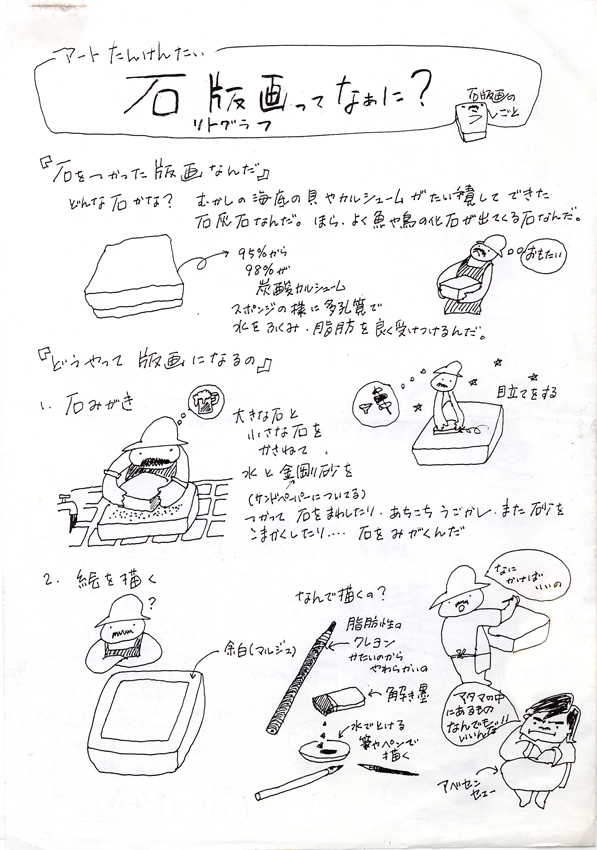 アートたんけんたい
石版画ってなぁに？
リトグラフ
石版画の
しごと
『石をつかった版画なんだ』
どんな石かな？ むかしの海底の貝やカルシュームがたい積してできた
石灰石なんだ。ほら、よく魚や鳥の化石が出てくる石なんだ。
95%から
98%が
炭酸カルシューム
スポンジの様に多孔質で
水をふくみ・脂肪を良く受けつけるんだ。
おもたい
『どうやって版画になるの』
1. 石みがき
大きな石と
小さな石を
かさねて
水と金剛砂を
(サンドペーパーについてる)
つかって石をまわしたり・あちこちうごかし、また砂を
こまかくしたり‥‥石をみがくんだ
目立てをする
2. 絵を描く
?
余白(マルジュ)
なんで描くの？
脂肪性の
クレヨン
かたいのから
やわらかいの
解き墨
水でとける
筆やペンで
描く
なに
かけば
いいの
アタマの中
にあるもの
なんでも!!
いいんだ
アベセン
セェー